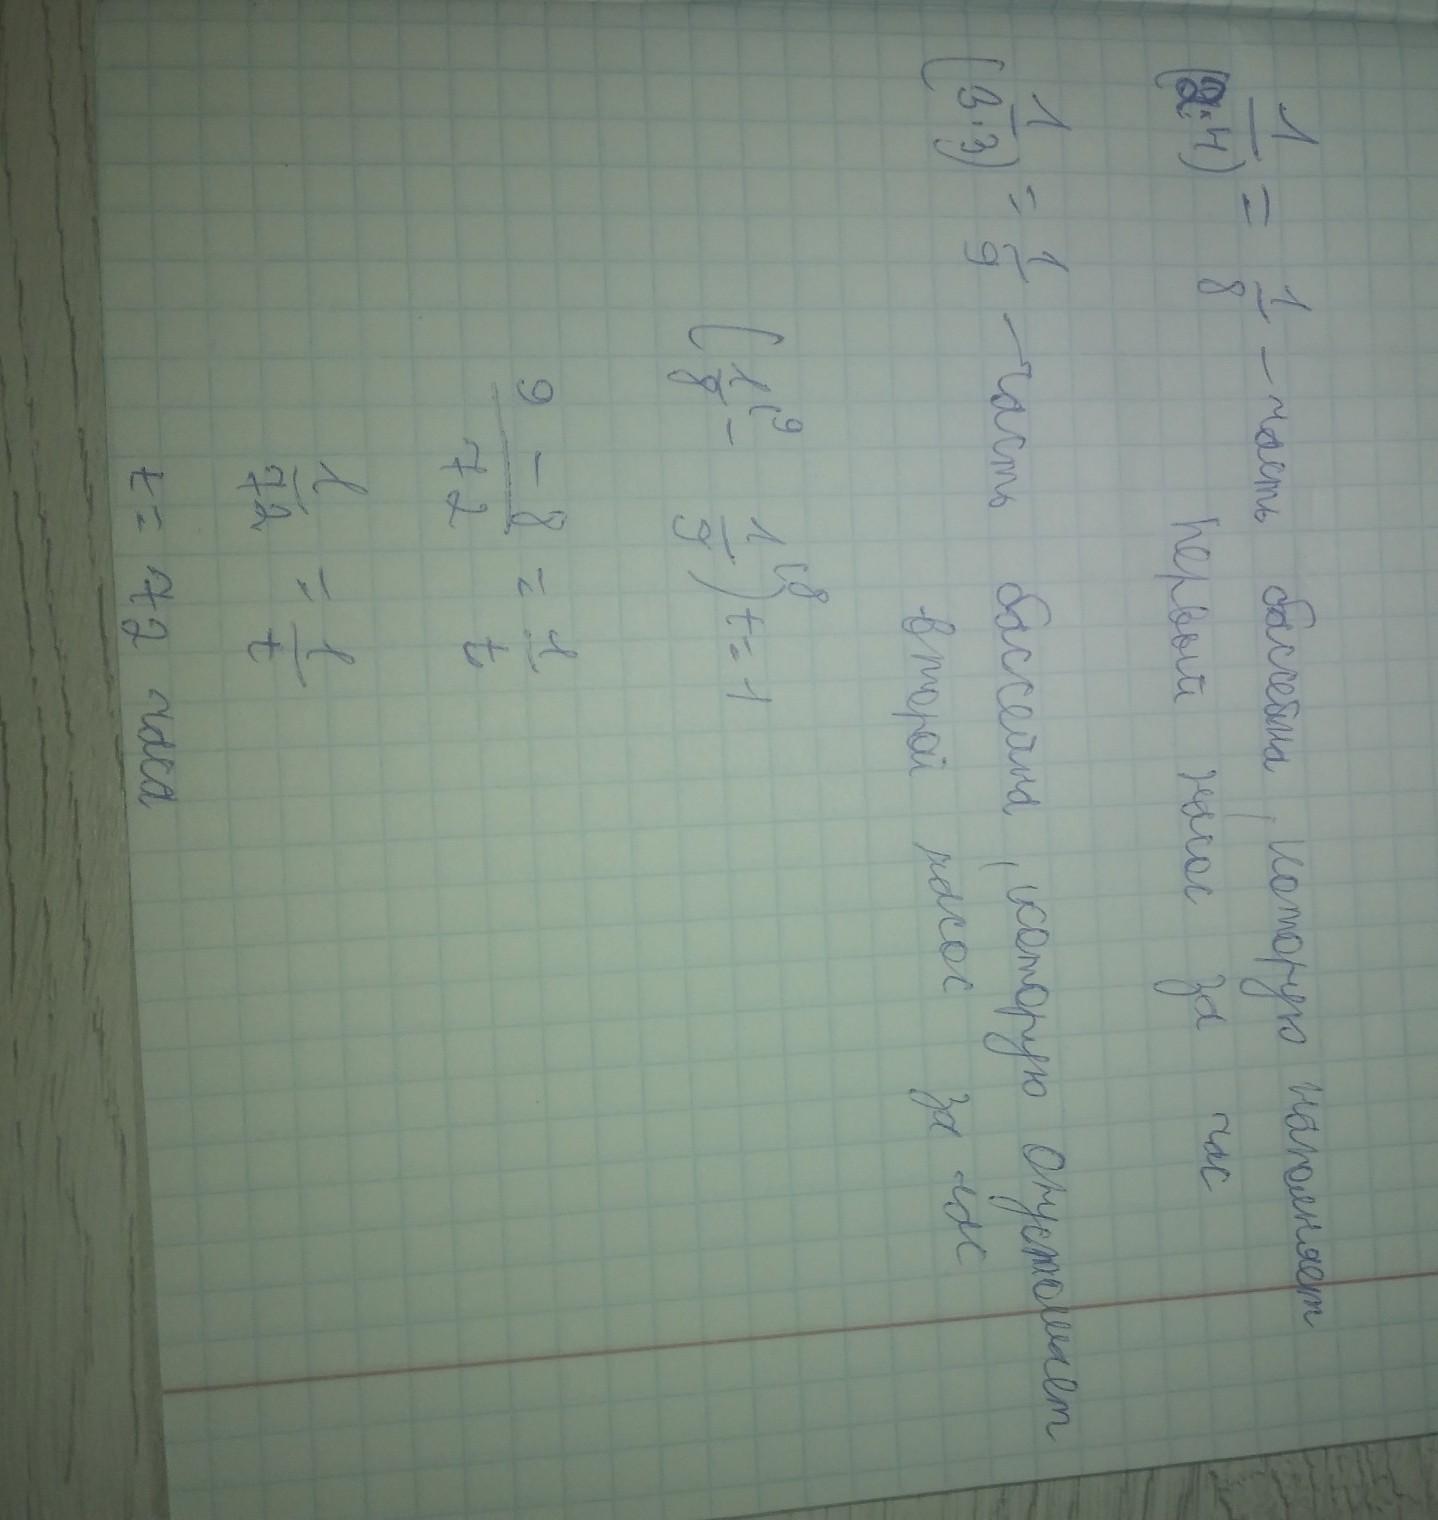 1/(2·4) = 1/8 – часть бассейна, которую наполняет
первый насос за час
1/(3·3) = 1/9 – часть бассейна, которую опустошает
второй насос за час
(1/8⁽⁹ – 1/9⁽⁸) t = 1
(9 – 8)/72 = 1/t
1/72 = 1/t
t = 72 часа